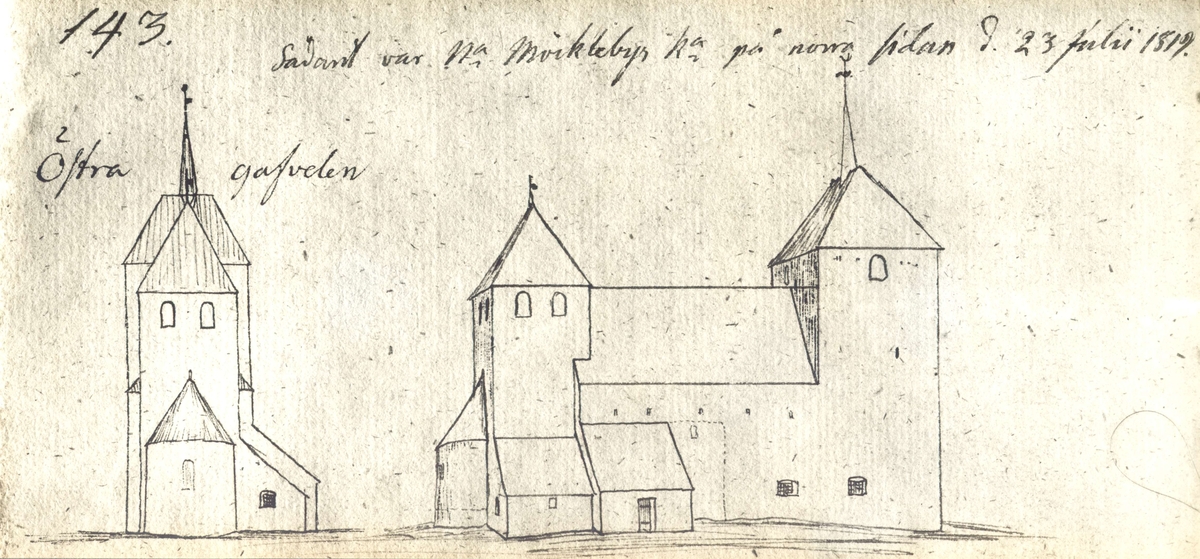 143.
Sådant var Na Möcklebys Ka på norra sidan d. 23 Julii 1819.
Östra gafvelen